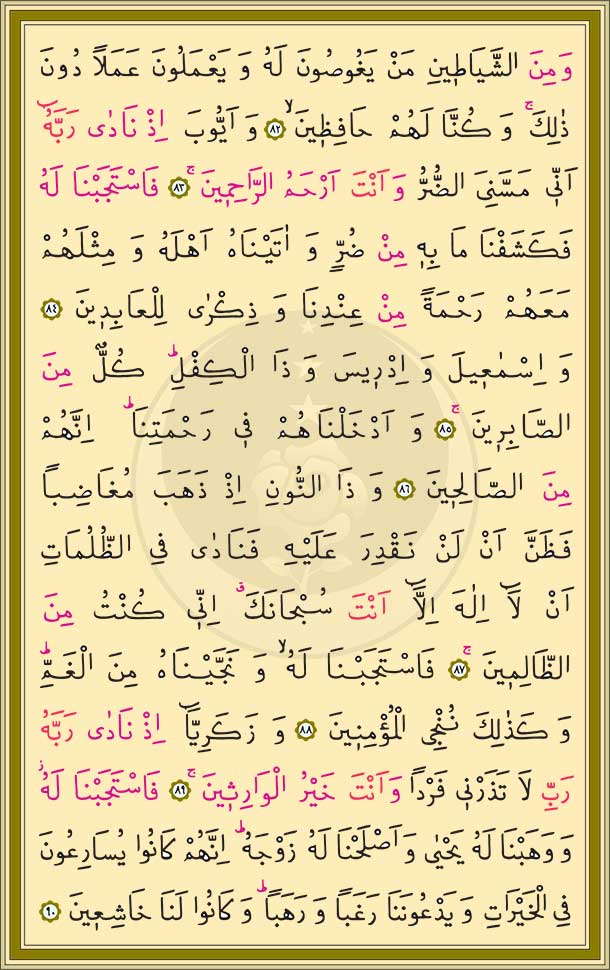 وَمِنَ الشَّيَاط۪ينِ مَنْ يَغُوصُونَ لَهُ وَ يَعْمَلُونَ عَمَلاً دُونَ
ذٰلِكَۚ وَ كُنَّا لَهُمْ حَافِظ۪ينَۙ ﴿٨٢﴾ وَ اَيُّوبَ اِذْ نَادٰى رَبَّهُٓ
اَنّ۪ي مَسَّنِيَ الضُّرُّ وَ اَنْتَ اَرْحَمُ الرَّاحِم۪ينَۚ ﴿٨٣﴾ فَاسْتَجَبْنَا لَهُ
فَكَشَفْنَا مَا بِه۪ مِنْ ضُرٍّ وَ اٰتَيْنَاهُ اَهْلَهُ وَ مِثْلَهُمْ
مَعَهُمْ رَحْمَةً مِنْ عِنْدِنَا وَ ذِكْرٰى لِلْعَابِد۪ينَ ﴿٨٤﴾
وَ اِسْمٰع۪يلَ وَ اِدْر۪يسَ وَ ذَا الْكِفْلِۜ كُلٌّ مِنَ
الصَّابِر۪ينَۚ ﴿٨٥﴾ وَ اَدْخَلْنَاهُمْ ف۪ي رَحْمَتِنَاۜ اِنَّهُمْ
مِنَ الصَّالِح۪ينَ ﴿٨٦﴾ وَ ذَا النُّونِ اِذْ ذَهَبَ مُغَاضِباً
فَظَنَّ اَنْ لَنْ نَقْدِرَ عَلَيْهِ فَنَادٰى فِي الظُّلُمَاتِ
اَنْ لَٓا اِلٰهَ اِلَّٓا اَنْتَ سُبْحَانَكَۗ اِنّ۪ي كُنْتُ مِنَ
الظَّالِم۪ينَۚ ﴿٨٧﴾ فَاسْتَجَبْنَا لَهُۙ وَ نَجَّيْنَاهُ مِنَ الْغَمِّۜ
وَ كَذٰلِكَ نُنْجِي الْمُؤْمِن۪ينَ ﴿٨٨﴾ وَ زَكَرِيَّٓا اِذْ نَادٰى رَبَّهُ
رَبِّ لَا تَذَرْن۪ي فَرْداً وَاَنْتَ خَيْرُ الْوَارِث۪ينَۚ ﴿٨٩﴾ فَاسْتَجَبْنَا لَهُۘ
وَوَهَبْنَا لَهُ يَحْيٰى وَاَصْلَحْنَا لَهُ زَوْجَهُۜ اِنَّهُمْ كَانُوا يُسَارِعُونَ
فِي الْخَيْرَاتِ وَيَدْعُونَنَا رَغَباً وَ رَهَباًۜ وَكَانُوا لَنَا خَاشِع۪ينَ ﴿٩٠﴾